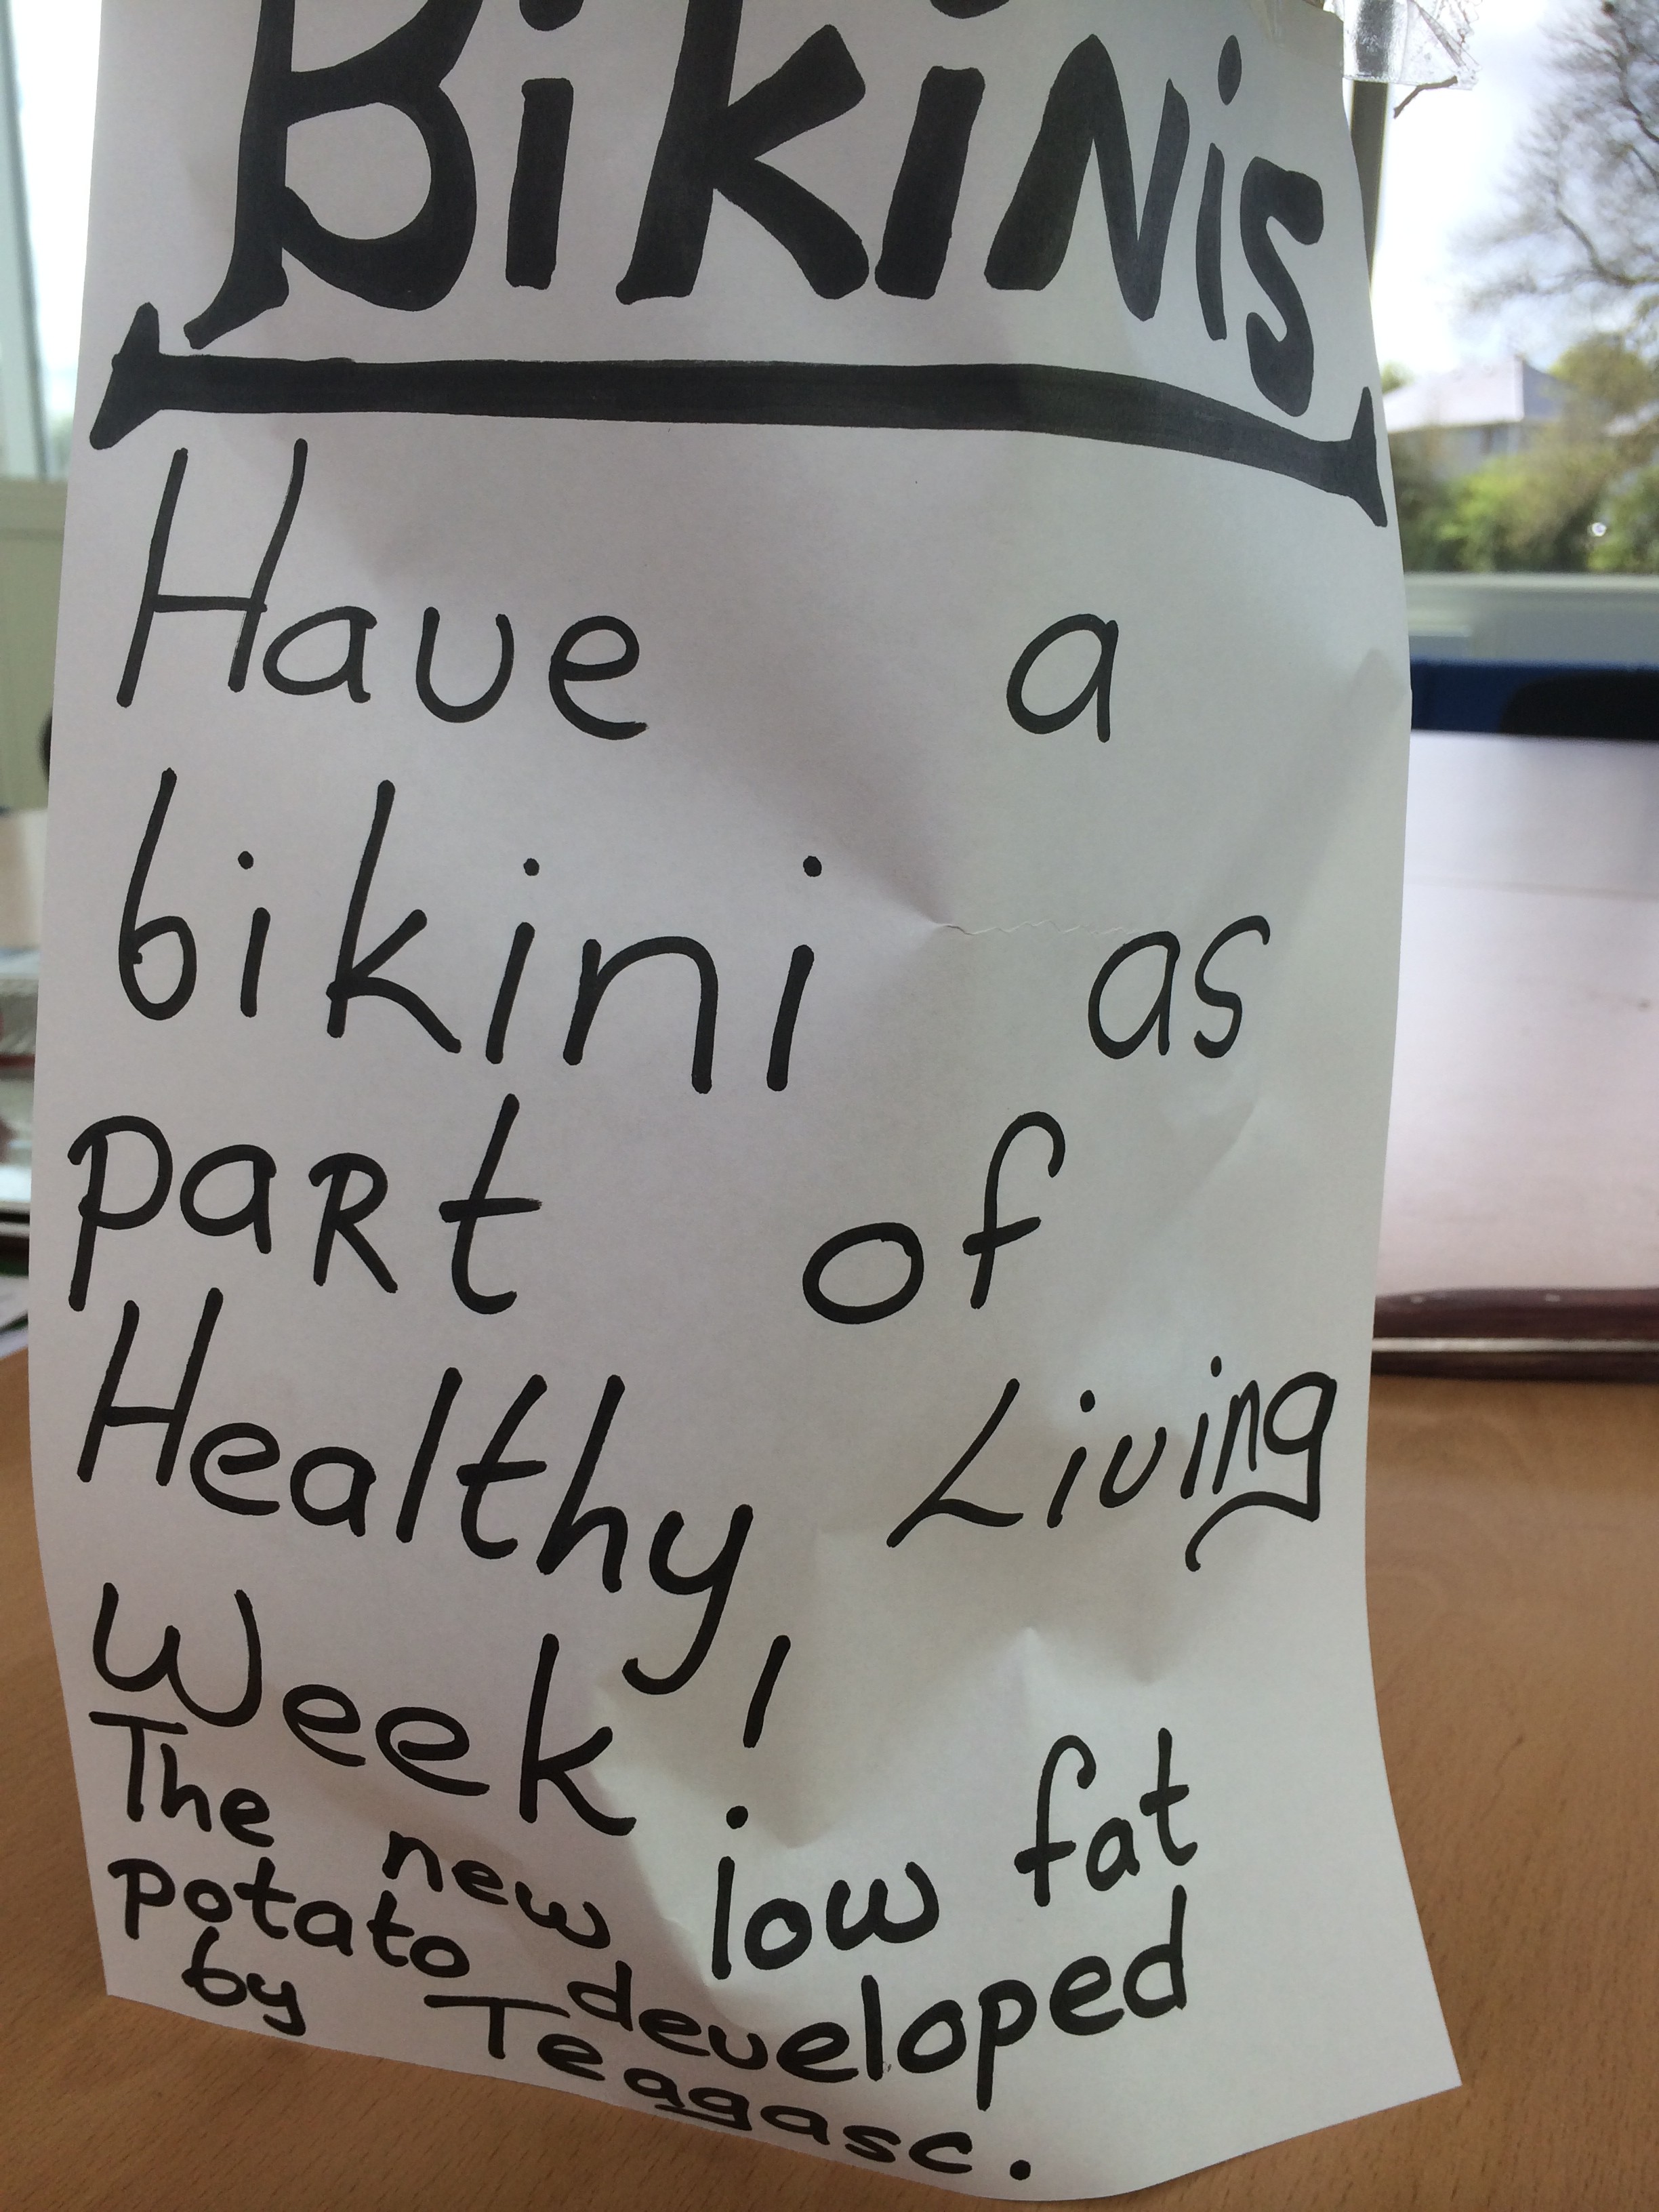 BikiNis
Have a
bikini as
paRt of
Healthy Living
Week!
The new low fat
potato developed
by Teagasc.